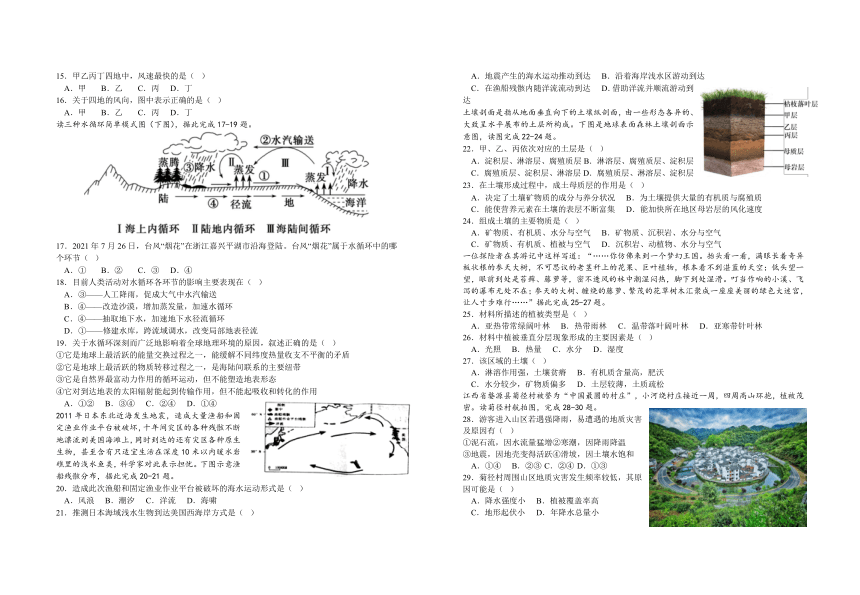 15．甲乙丙丁四地中，风速最快的是（ ）
A．甲 B．乙 C．丙 D．丁
16．关于四地的风向，图中表示正确的是（ ）
A．甲 B．乙 C．丙 D．丁
读三种水循环简单模式图（下图），据此完成17-19题。
②水汽输送
蒸腾
③降水
Ⅱ
蒸发
①
Ⅲ
蒸发
Ⅰ
降水
陆
④
径流
地
海洋
Ⅰ海上内循环 Ⅱ陆地内循环 Ⅲ海陆间循环
17．2021年7月26日，台风“烟花”在浙江嘉兴平湖市沿海登陆。台风“烟花”属于水循环中的哪
个环节（ ）
A．① B．② C．③ D．④
18．目前人类活动对水循环各环节的影响主要表现在（ ）
A．③——人工降雨，促成大气中水汽输送
B．④——改造沙漠，增加蒸发量，加速水循环
C．④——抽取地下水，加速地下水径流循环
D．①——修建水库，跨流域调水，改变局部地表径流
19．关于水循环深刻而广泛地影响着全球地理环境的原因，叙述正确的是（ ）
①它是地球上最活跃的能量交换过程之一，能缓解不同纬度热量收支不平衡的矛盾
②它是地球上最活跃的物质转移过程之一，是海陆间联系的主要纽带
③它是自然界最富动力作用的循环运动，但不能塑造地表形态
④它对到达地表的太阳辐射能起到传输作用，但不能起吸收和转化的作用
A．①② B．③④ C．②④ D．①④
2011年日本东北近海发生地震，造成大量渔船和固
定渔业作业平台被破坏，十年间灾区的各种残骸不断
地漂流到美国海滩上，同时到达的还有灾区各种原生
生物，甚至含有只适宜生活在深度10米以内暖水岩
礁里的浅水鱼类，科学家对此表示担忧。下图示意渔
船残骸分布，据此完成20-21题。
20．造成此次渔船和固定渔业作业平台被破坏的海水运动形式是（ ）
A．风浪 B．潮汐 C．洋流 D．海啸
21．推测日本海域浅水生物到达美国西海岸方式是（ ）
A．地震产生的海水运动推动到达 B．沿着海岸浅水区游动到达
C．在渔船残骸内随洋流流动到达 D．借助洋流并顺流游动到
达
土壤剖面是指从地面垂直向下的土壤纵剖面，由一些形态各异的、
大致呈水平展布的土层所构成。下图是地球表面森林土壤剖面示
意图，读图完成22-24题。
枯枝落叶层
甲层
乙层
丙层
母质层
母岩层
22．甲、乙、丙依次对应的土层是（ ）
A．淀积层、淋溶层、腐殖质层 B．淋溶层、腐殖质层、淀积层
C．腐殖质层、淀积层、淋溶层 D．腐殖质层、淋溶层、淀积层
23．在土壤形成过程中，成土母质层的作用是（ ）
A．决定了土壤矿物质的成分与养分状况 B．为土壤提供大量的有机质与腐殖质
C．能使营养元素在土壤的表层不断富集 D．能加快所在地区母岩层的风化速度
24．组成土壤的主要物质是（ ）
A．矿物质、有机质、水分与空气 B．矿物质、沉积岩、水分与空气
C．矿物质、有机质、植被与空气 D．沉积岩、动植物、水分与空气
一位探险者在其游记中这样写道：“……你仿佛来到一个梦幻王国。抬头看一看，满眼长着奇异
板状根的参天大树，不可思议的老茎秆上的花果、巨叶植物，根本看不到湛蓝的天空；低头望一
望，眼前到处是苔藓、藤萝等，密不透风的林中潮湿闷热，脚下到处湿滑。叮当作响的小溪、飞
泻的瀑布无处不在；参天的大树、缠绕的藤萝、繁茂的花草树木汇聚成一座座美丽的绿色大迷宫，
让人寸步难行……”据此完成25-27题。
25．材料所描述的植被类型是（ ）
A．亚热带常绿阔叶林 B．热带雨林 C．温带落叶阔叶林 D．亚寒带针叶林
26．材料中植被垂直分层现象形成的主要因素是（ ）
A．光照 B．热量 C．水分 D．湿度
27．该区域的土壤（ ）
A．淋溶作用强，土壤贫瘠 B．有机质含量高，肥沃
C．水分较少，矿物质偏多 D．土层较薄，土质疏松
江西省婺源县菊径村被誉为“中国最圆的村庄”，小河绕村庄接近一周，四周高山环抱，植被茂
密。读菊径村航拍图，完成28-30题。
28．游客进入山区若遇强降雨，易遭遇的地质灾害
及原因有（ ）
①泥石流，因水流量猛增②寒潮，因降雨降温
③地震，因地壳变得活跃④滑坡，因土壤水饱和
A．①④ B．②③ C．②④ D．①③
29．菊径村周围山区地质灾害发生频率较低，其原
因可能是（ ）
A．降水强度小 B．植被覆盖率高
C．地形起伏小 D．年降水总量小